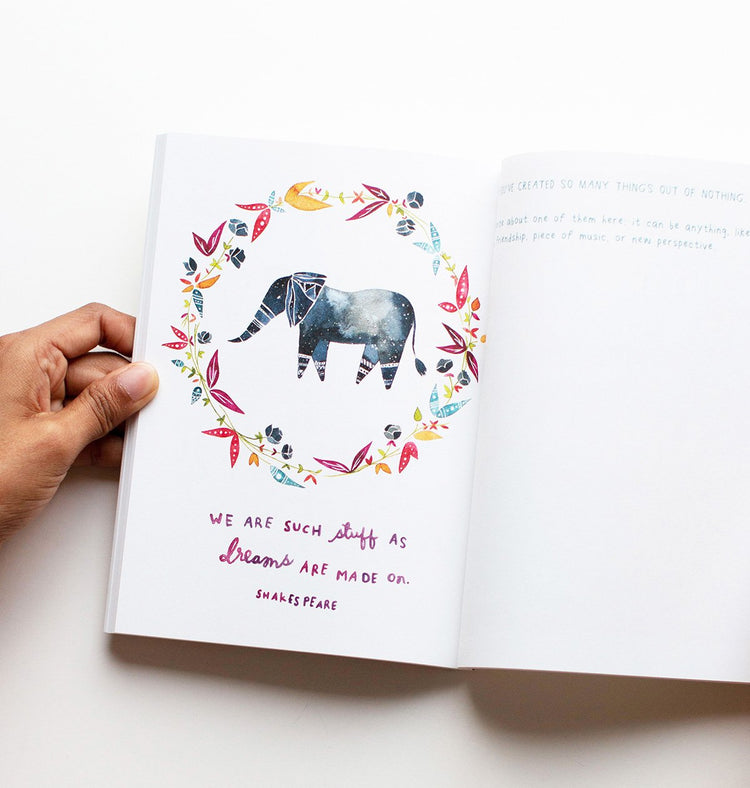 WE ARE SUCH stuff AS
dreams ARE MADE ON.
SHAKESPEARE
CREATED SO MANY THINGS OUT OF NOTHING.
about one of them here: it can be anything, like
friendship, piece of music, or new perspective.